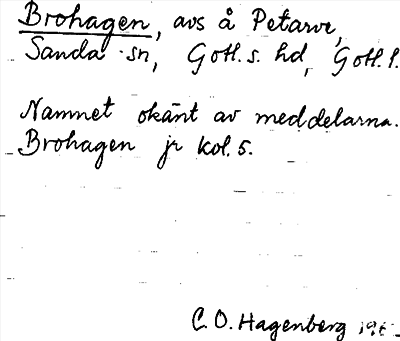 Brohagen, avs å Petarve,
Sanda sn, Gotl. s. hd, Gotl. l.
Namnet okänt av meddelarna.
Brohagen jr kol. 5.
C. O. Hagenberg